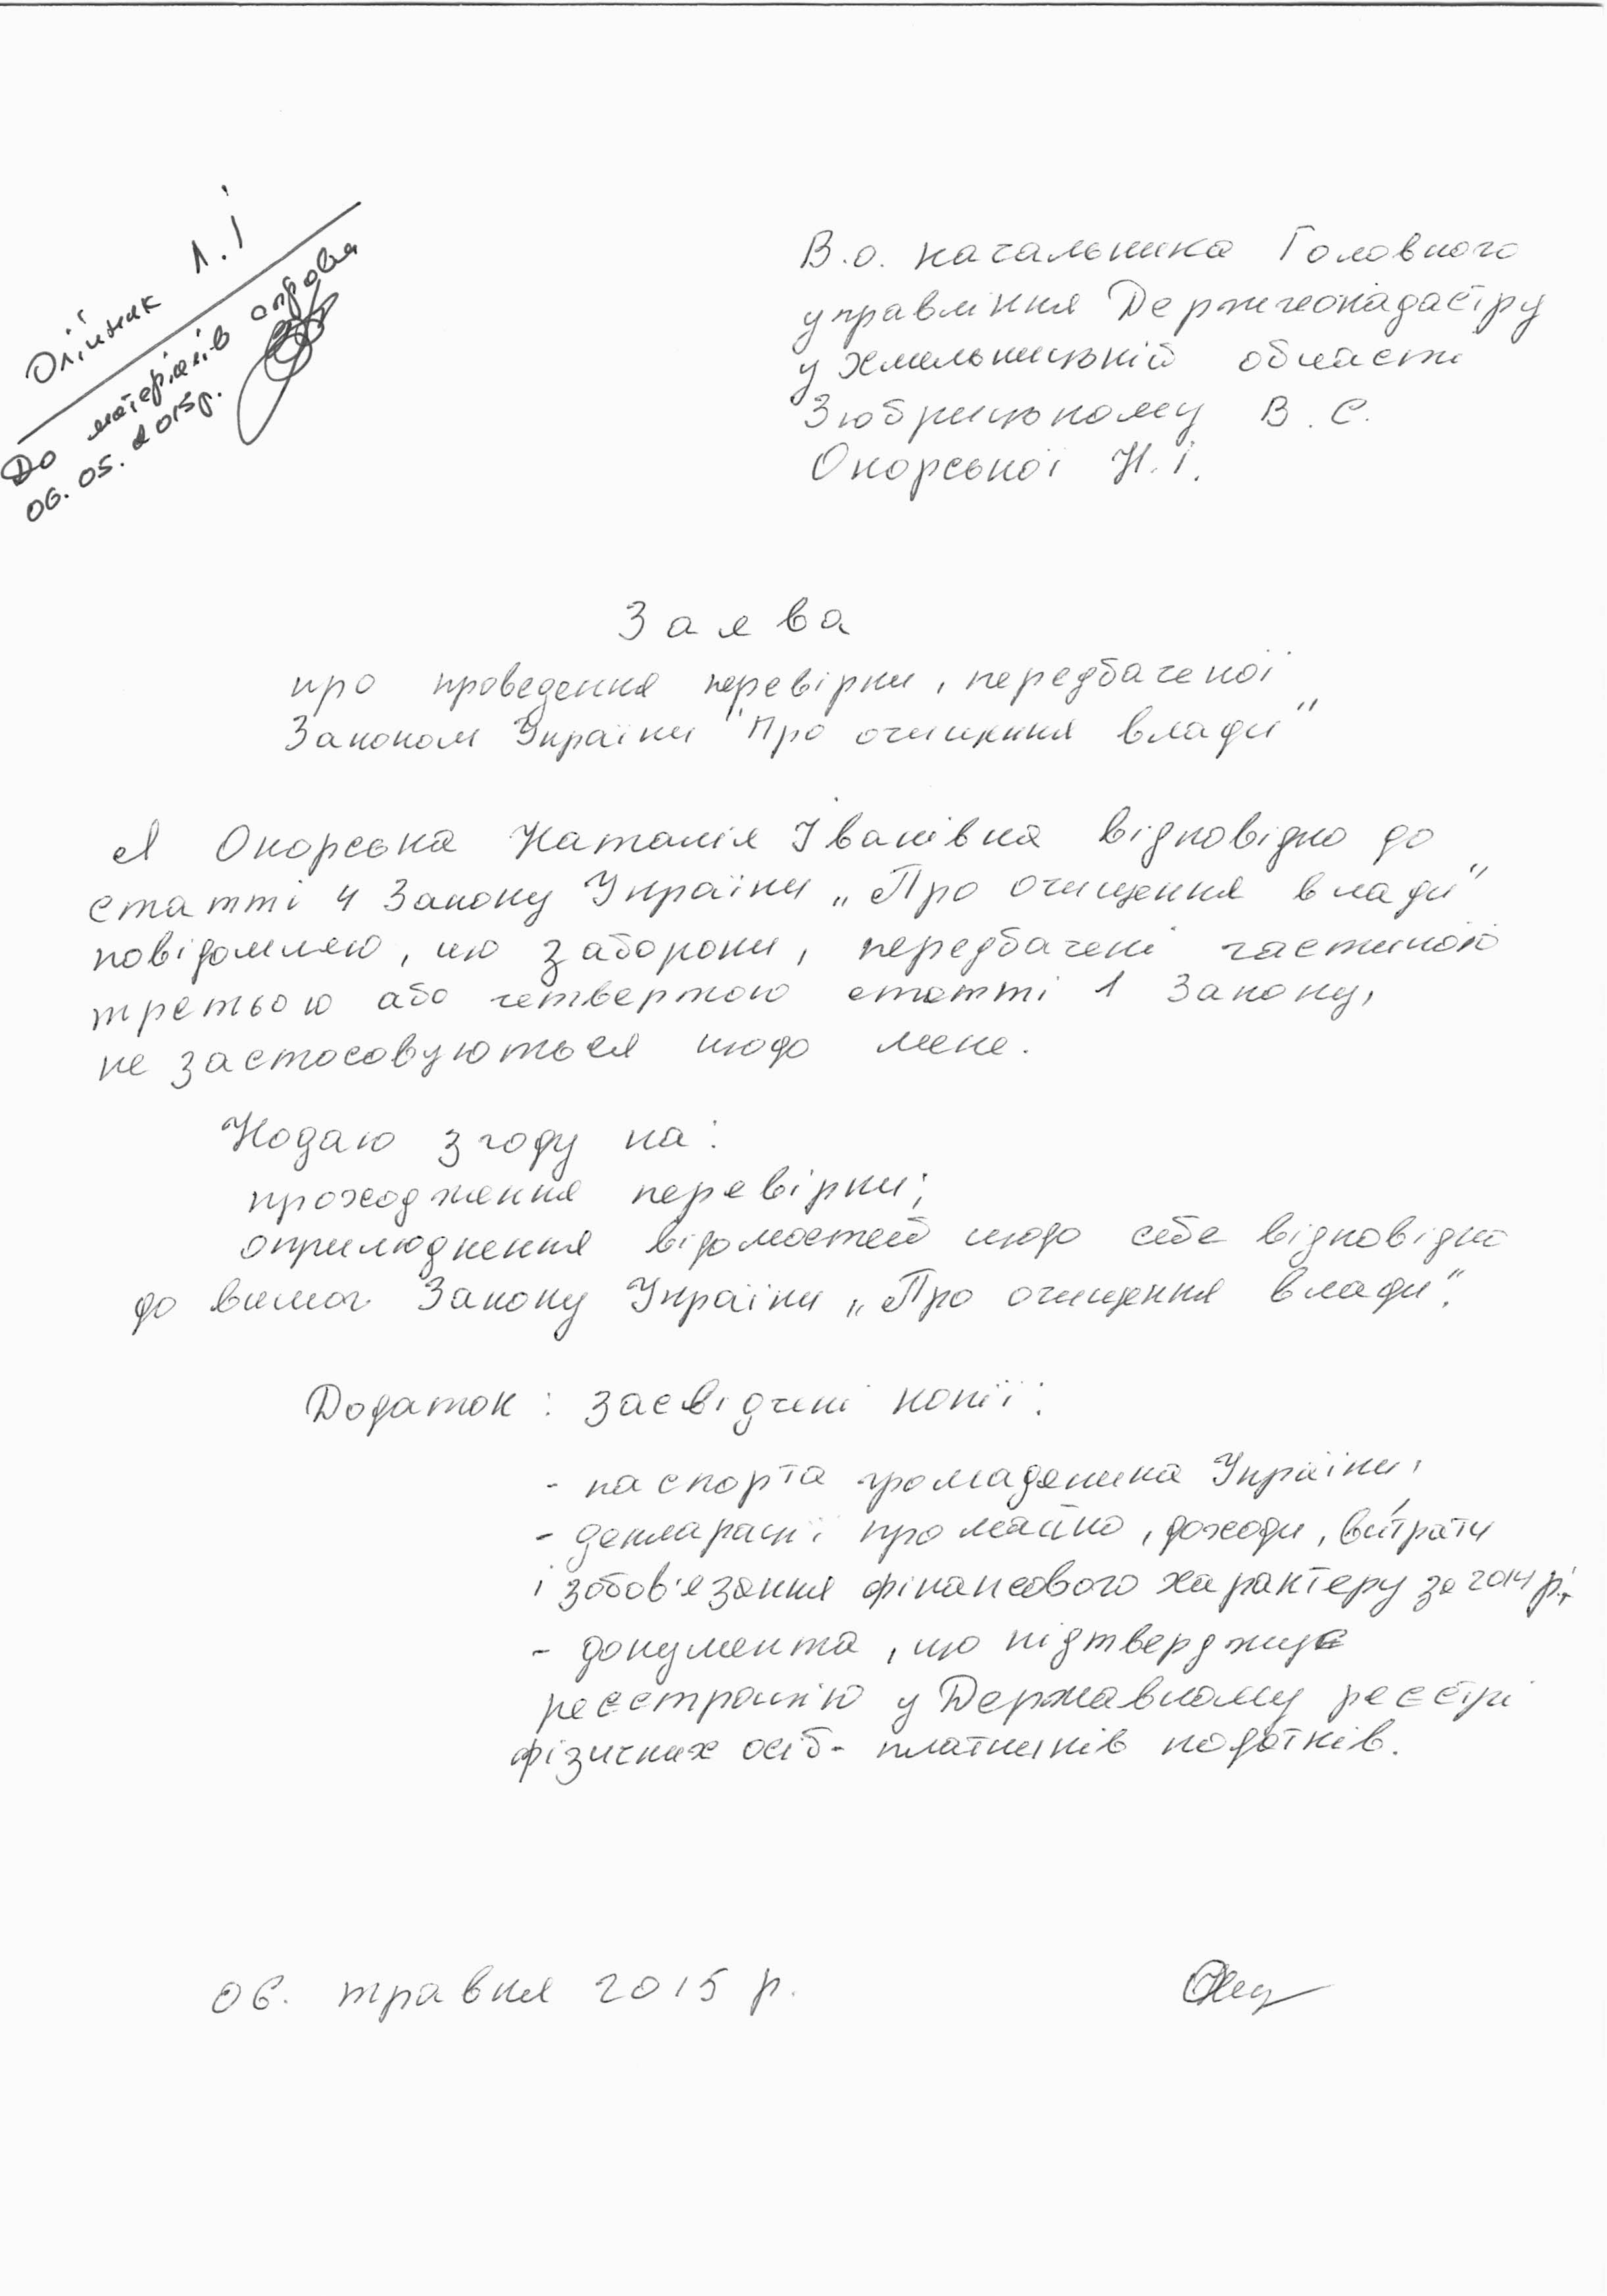 Олійник Л.І
До матеріалів справа
06.05.2015р.
В.о. начальника Головного
управління Держгеокадастру
у Хмельницькій області
Зюбрицькому В.С.
Окорської Н.І.
Заява
про проведення перевірки, передбаченої
Законом України "Про очищення влади"
Я Окорська Наталія Іванівна відповідно до
статті 4 Закону України „Про очищення влади"
повідомляю, що заборони, передбачені частиною
третьою або четвертою статті 1 Закону,
не застосовуються щодо мене.
Надаю згоду на:
проходження перевірки;
оприлюднення відомостей щодо себе відповідно
до вимог Закону України „Про очищення влади".
Додаток: засвідчені копії:
- паспорта громадянина України,
- декларації про майно, доходи, витрати
і зобов'язання фінансового характеру за 2014 р.,
- документа, що підтверджує
реєстрацію у Державному реєстрі
фізичних осіб- платників податків.
06. травня 2015 р.